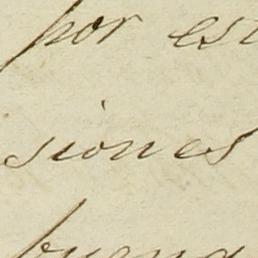 por est
siones
buena